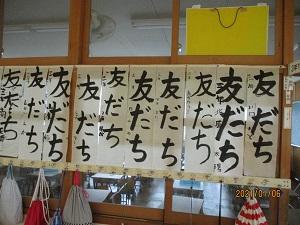 友だち
友だち
友だち
友だち
友だち
友だち
友だち
友だち
友だち
2021/01/06